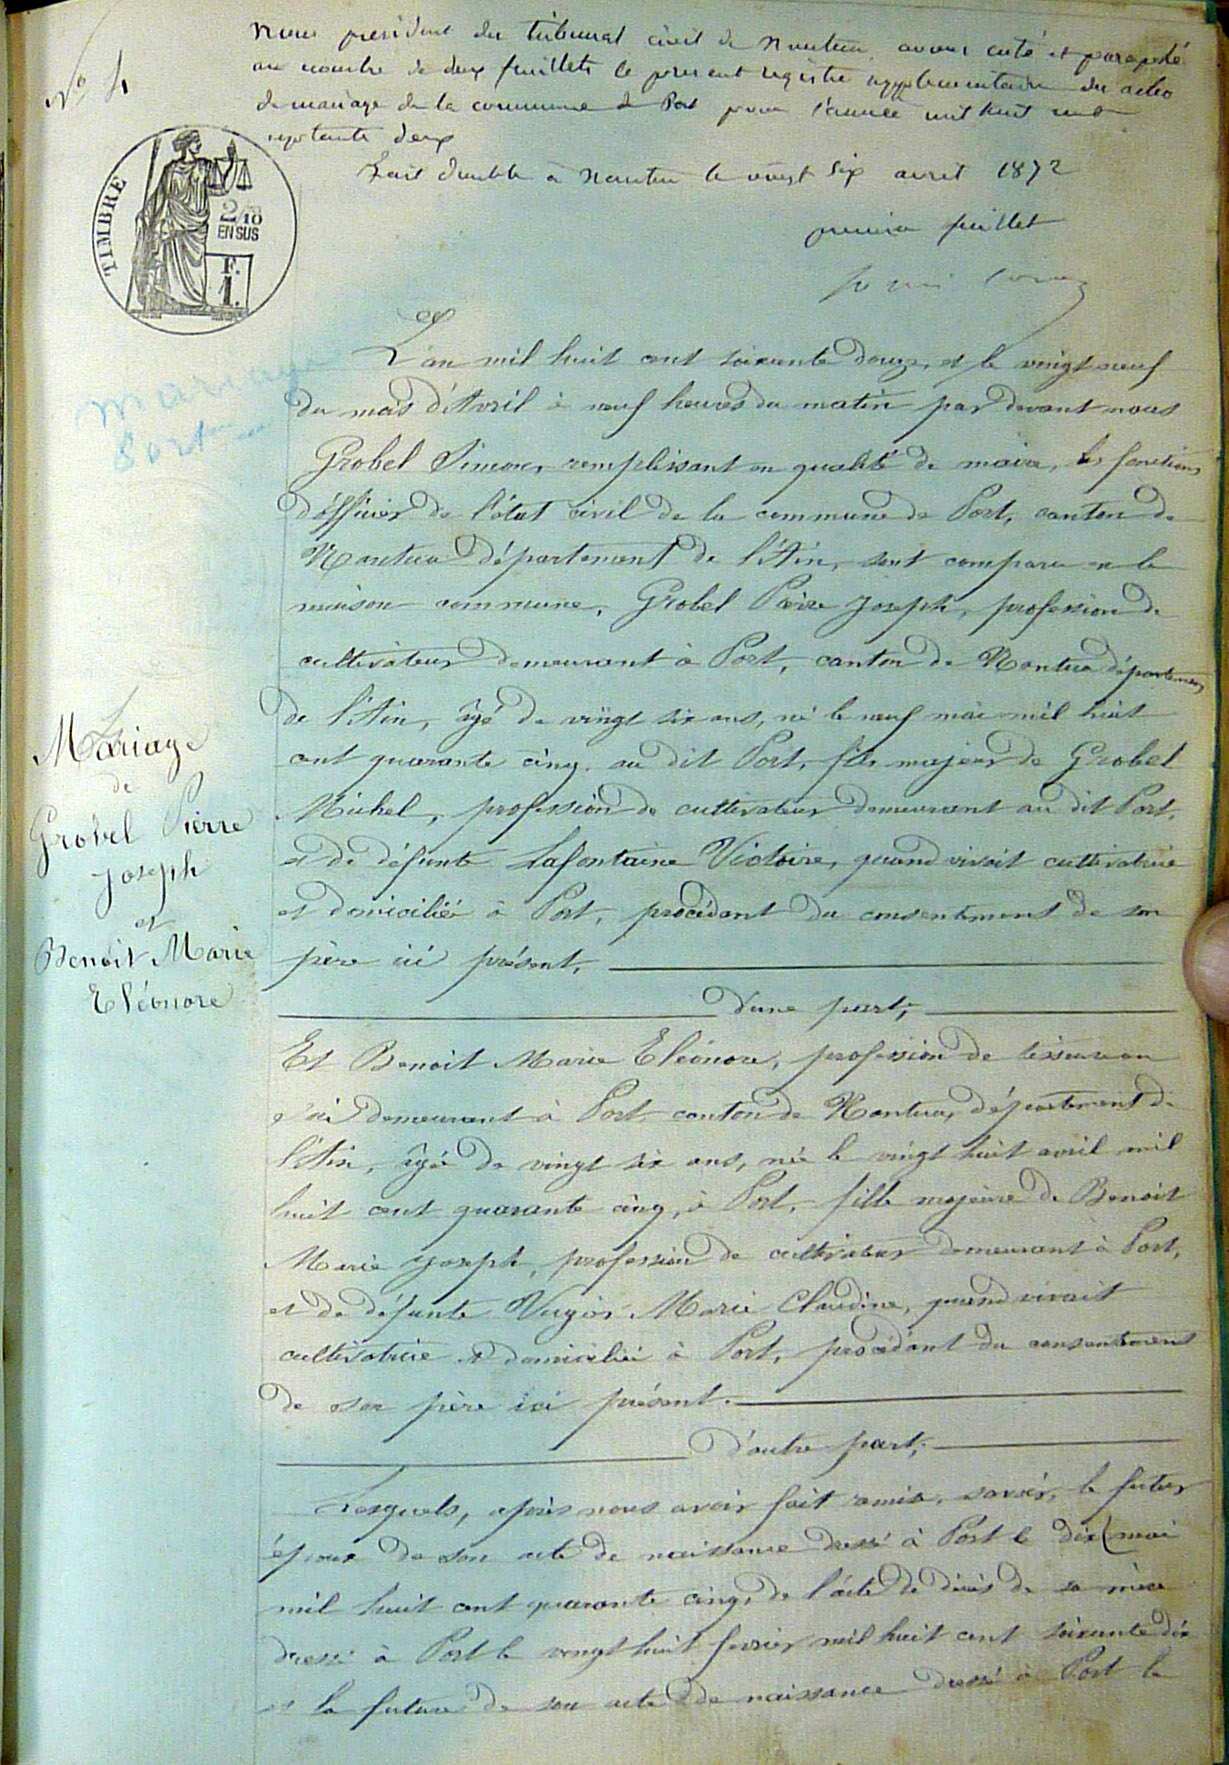 Nº 4
Nous président du tribunal civil de Nantua avons coté et paraphé
au nombre de deux feuillets le présent registre supplémentaire des actes
de mariage de la commune de Port pour l'année mil huit cent
septante deux
Fait double à Nantua le vingt six avril 1872
premier feuillet
TIMBRE
2/10
EN SUS
F.
1.
mariage
Port
L'an mil huit cent soixante douze, et le vingt neuf
du mois d'Avril à neuf heures du matin par devant nous
Grobel Simon, remplissant en qualité de maire, les fonctions
d'officier de l'état civil de la commune de Port, canton de
Nantua département de l'Ain, sont comparu en la
maison commune, Grobel Pierre Joseph, profession de
cultivateur demeurant à Port, canton de Nantua département
de l'Ain, âgé de vingt six ans, né le neuf mai mil huit
cent quarante cinq, au dit Port, fils majeur de Grobel
Michel, profession de cultivateur demeurant au dit Port,
et de défunte Lafontaine Victoire, quand vivait cultivatrice
et domiciliée à Port, procédant du consentement de son
père ici présent,
d'une part,
Mariage
de
Grobel Pierre
Joseph
et
Benoit Marie
Eléonore
Et Benoit Marie Eléonore, profession de tisseuse en
soie demeurant à Port, canton de Nantua, département de
l'Ain, âgée de vingt six ans, née le vingt huit avril mil
huit cent quarante cinq, à Port, fille majeure de Benoit
Marie Joseph, profession de cultivateur demeurant à Port,
et de défunte Marie Claudine, quand vivait
cultivatrice et domiciliée à Port, procédant du consentement
de son père ici présent.
d'autre part,
Lesquels, après nous avoir fait remise, savoir, le futur
époux de son acte de naissance dressé à Port le dix mai
mil huit cent quarante cinq, de l'acte de décès de sa mère
dressé à Port le vingt huit février mil huit cent soixante dix
et la future de son acte de naissance dressé à Port le